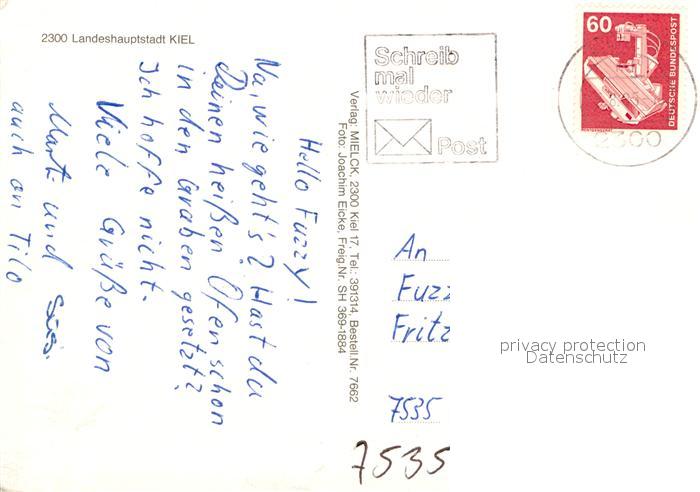 2300 Landeshauptstadt KIEL
Hello Fuzzy!
Na, wie geht's? Hast du
Deinen heißen Ofen schon
in den Graben gesetzt?
Ich hoffe nicht.
Viele Grüße von
Marit und
auch an Tilo
Verlag: MIELCK, 2300 Kiel 17, Tel.: 391314, Bestell.Nr. 7662
Foto: Joachim Eicke, Freig.Nr. SH 369-1884
Schreib
mal
wieder
Post
60
DEUTSCHE BUNDESPOST
2300
An
Fuzz
Fritz
7535
7535
privacy protection
Datenschutz